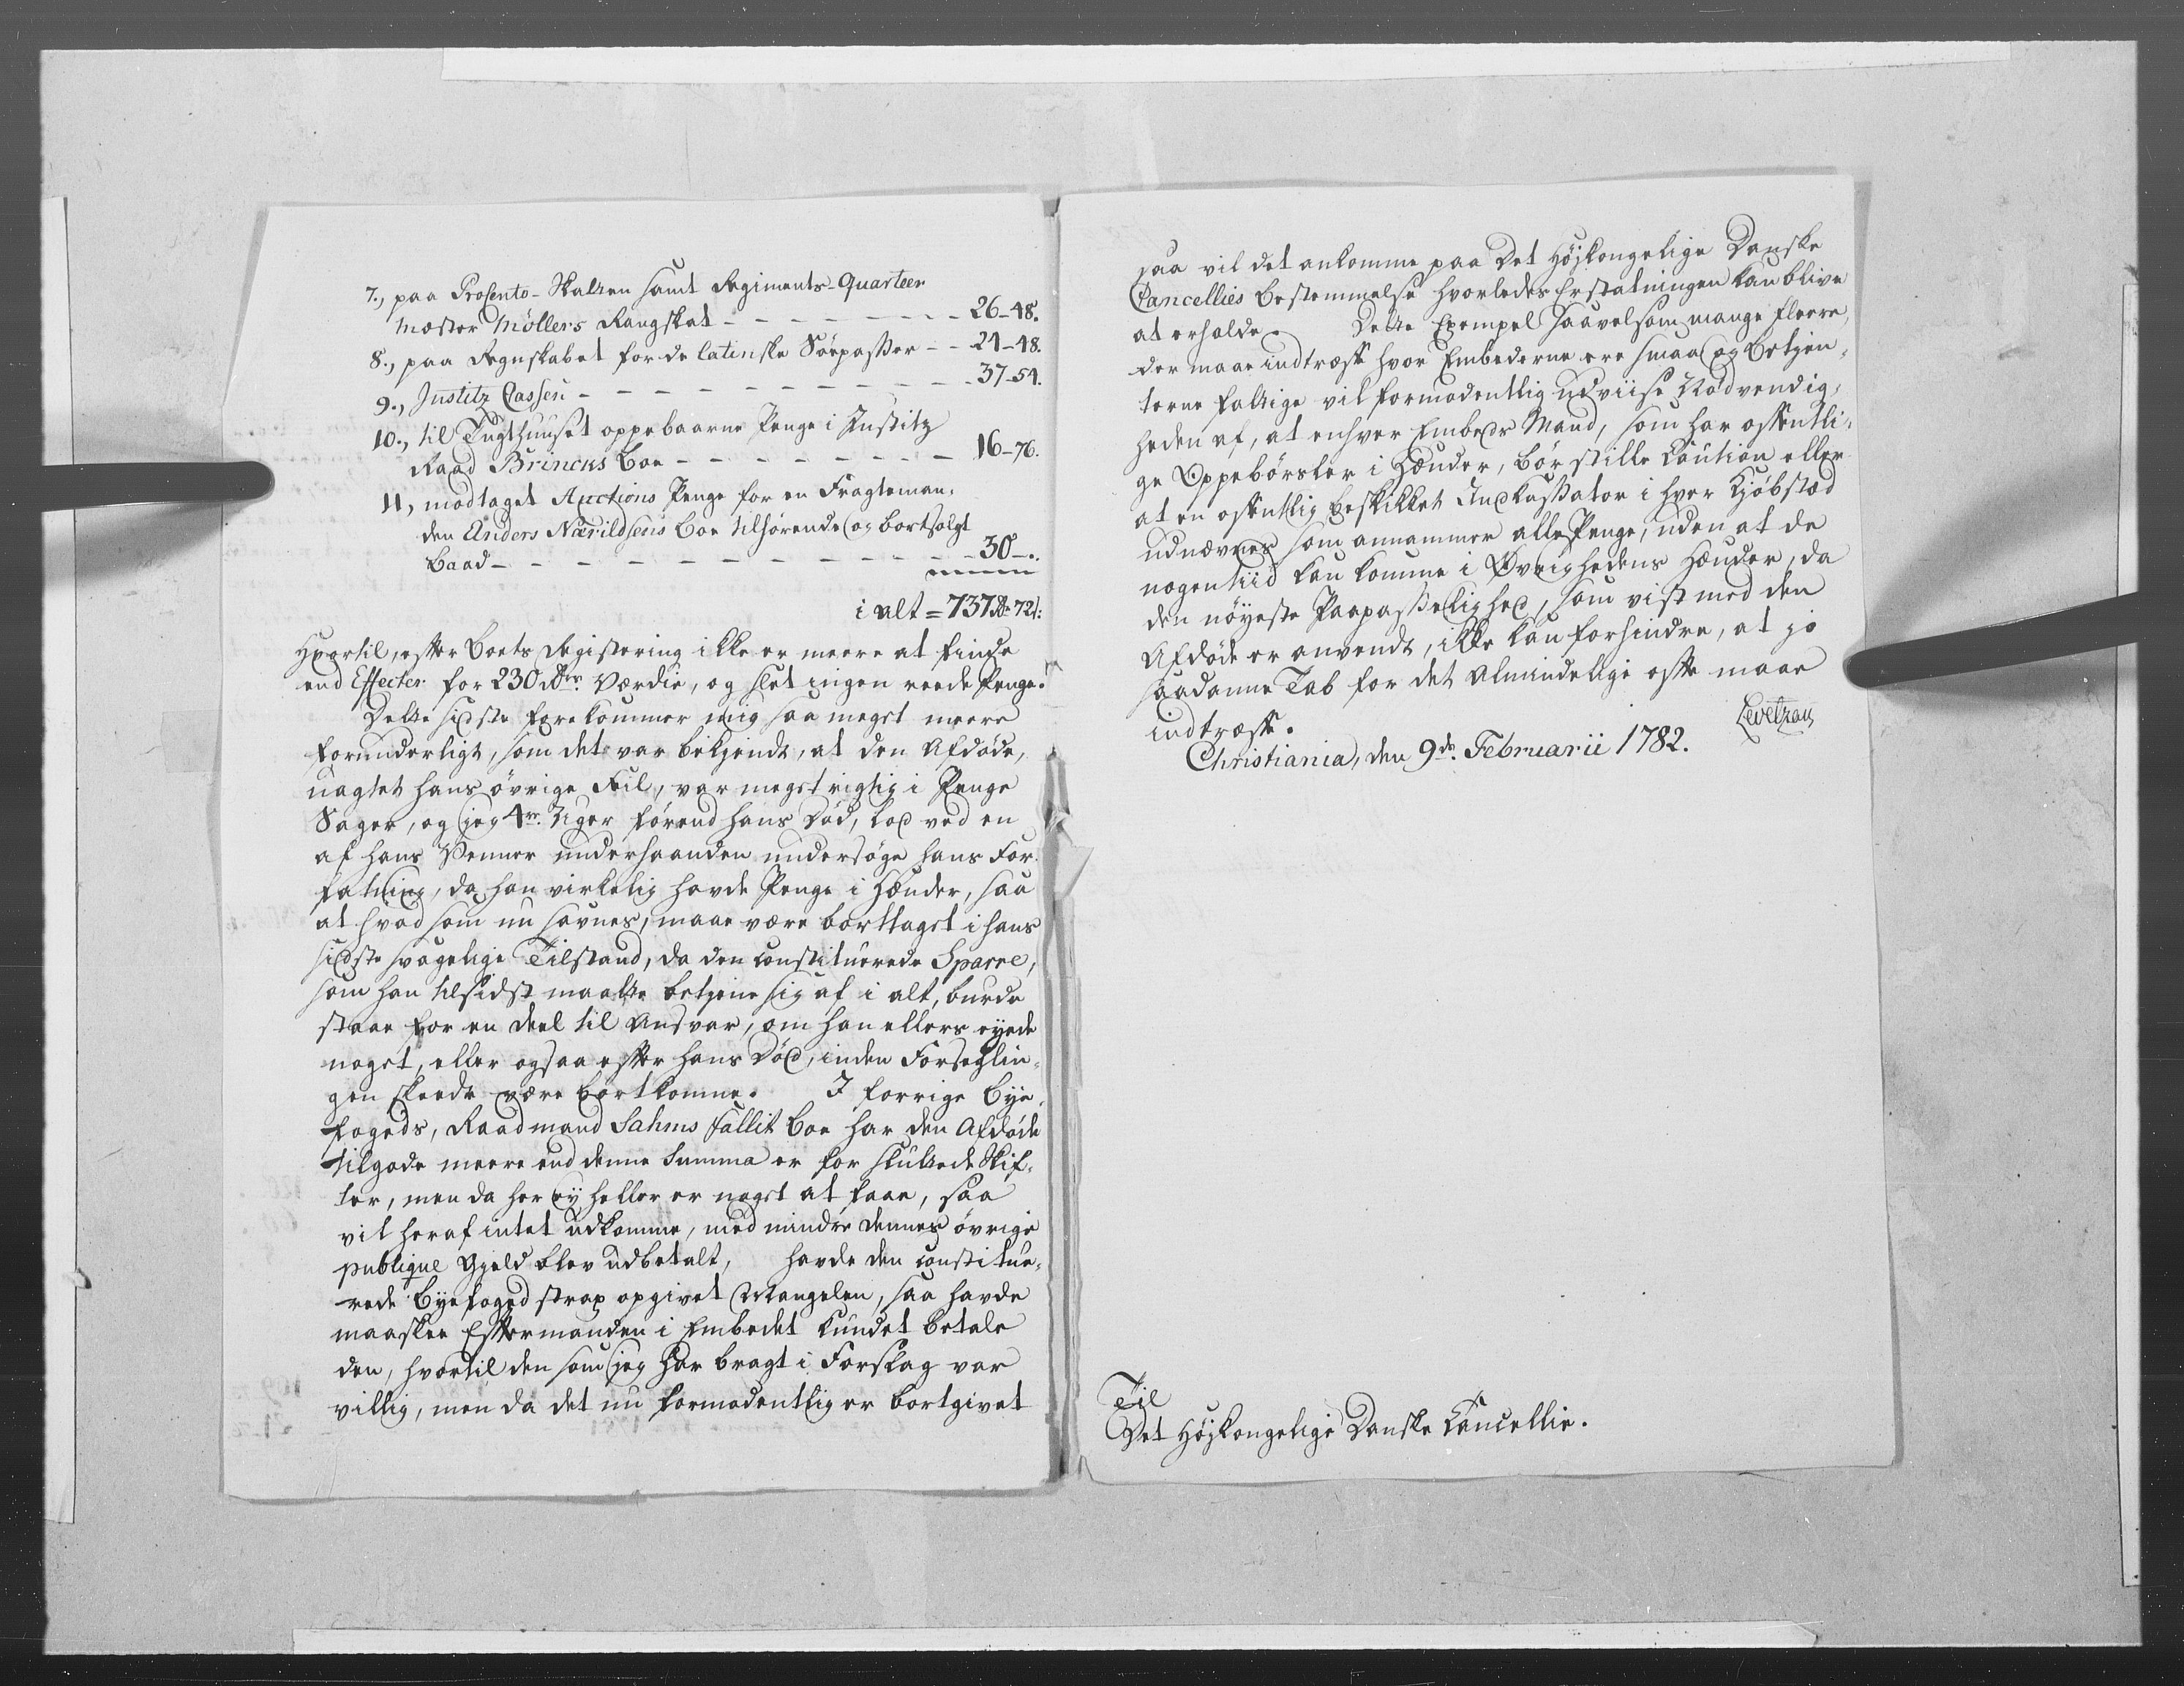 7., paa Prosento-Skatten samt Regiments-Quarteer
Mæster Möllers Rangskat - - - - - - - - 26-48.
8., paa Regnskabet for de latinske Söepasser - - 24-48.
9., Justitz Cassen - - - - - - - - - - - 37-54.
10., til Tugthuuset oppebaarne Penge i Justitz
Raad Brincks Boe - - - - - - - - - 16-76.
11, modtaget Auctions Penge for en Fragteman-
den Anders Nærildsens Boe tilhörende og bortsolgt
Baad - - - - - - - - - - - - 30-..
i alt = 737 Rd. 72 s:
Hvortil, efter Boets Registering ikke er meere at finde
end Effecter for 230 Rdlr. Værdie, og slet ingen reede Penge.
Dette sidste forekommer mig saa meget meere
forunderligt, som det var bekjendt, at den Afdöde,
uagtet hans övrige Feil, var meget rigtig i Penge
Sager, og jeg 4re. Uger förend hans Död, lod ved en
af hans Venner underhaanden undersöge hans For-
fatning, da han virkelig havde Penge i Hænder, saa
at hvad som nu savnes, maae være borttaget i hans
sidste svagelige Tilstand, da den constituerede Sparre,
som han tilsidst maatte betjene sig af i alt, burde
staae for en deel til Ansvar, om han ellers eyede
noget, eller ogsaa efter hans Död, inden Forseglin-
gen skeede være bortkomne. I forrige Bye-
fogeds, Raadmand Sahms fallit Boe har den Afdöde
tilgode meere end denne Summa er for sluttede Skif-
ter, men da her ey heller er noget at faae, saa
vil heraf intet udkomme, med mindre dennes övrige
publique Gjeld blev udbetalt, havde den constitue-
rede Byefoged strax opgivet Mangelen, saa havde
maaskee Eftermanden i Embedet kundet betale
den, hvortil den som jeg har bragt i Forslag var
villig, men da det nu formodentlig er bortgivet
saa vil det ankomme paa Det Højkongelige Danske
Cancellies Bestemmelse hvorledes Erstatningen kan blive
at erholde. Dette Exempel saavelsom mange fleere,
der maae indtræffe hvor Embederne ere smaa og Betjen-
terne fattige vil formodentlig udviise Nödvendig-
heden af, at enhver Embeds Mand, som har offentli-
ge Oppebörsler i Hænder, bör stille Caution eller
at en offentlig beskikket Incassator i hver Kjöbstæd
udnævnes som annammer alle Penge, uden at de
nogentiid kan komme i Övrighedens Hænder, da
den nöyeste Paapasselighed, som vist med den
Afdöde er anvendt, ikke kan forhindre, at jo
saadanne Tab for det Almindelige ofte maae
indtræffe.
Levetzau
Christiania, den 9de. Februarii 1782.
Til
Det Højkongelige Danske Cancellie.